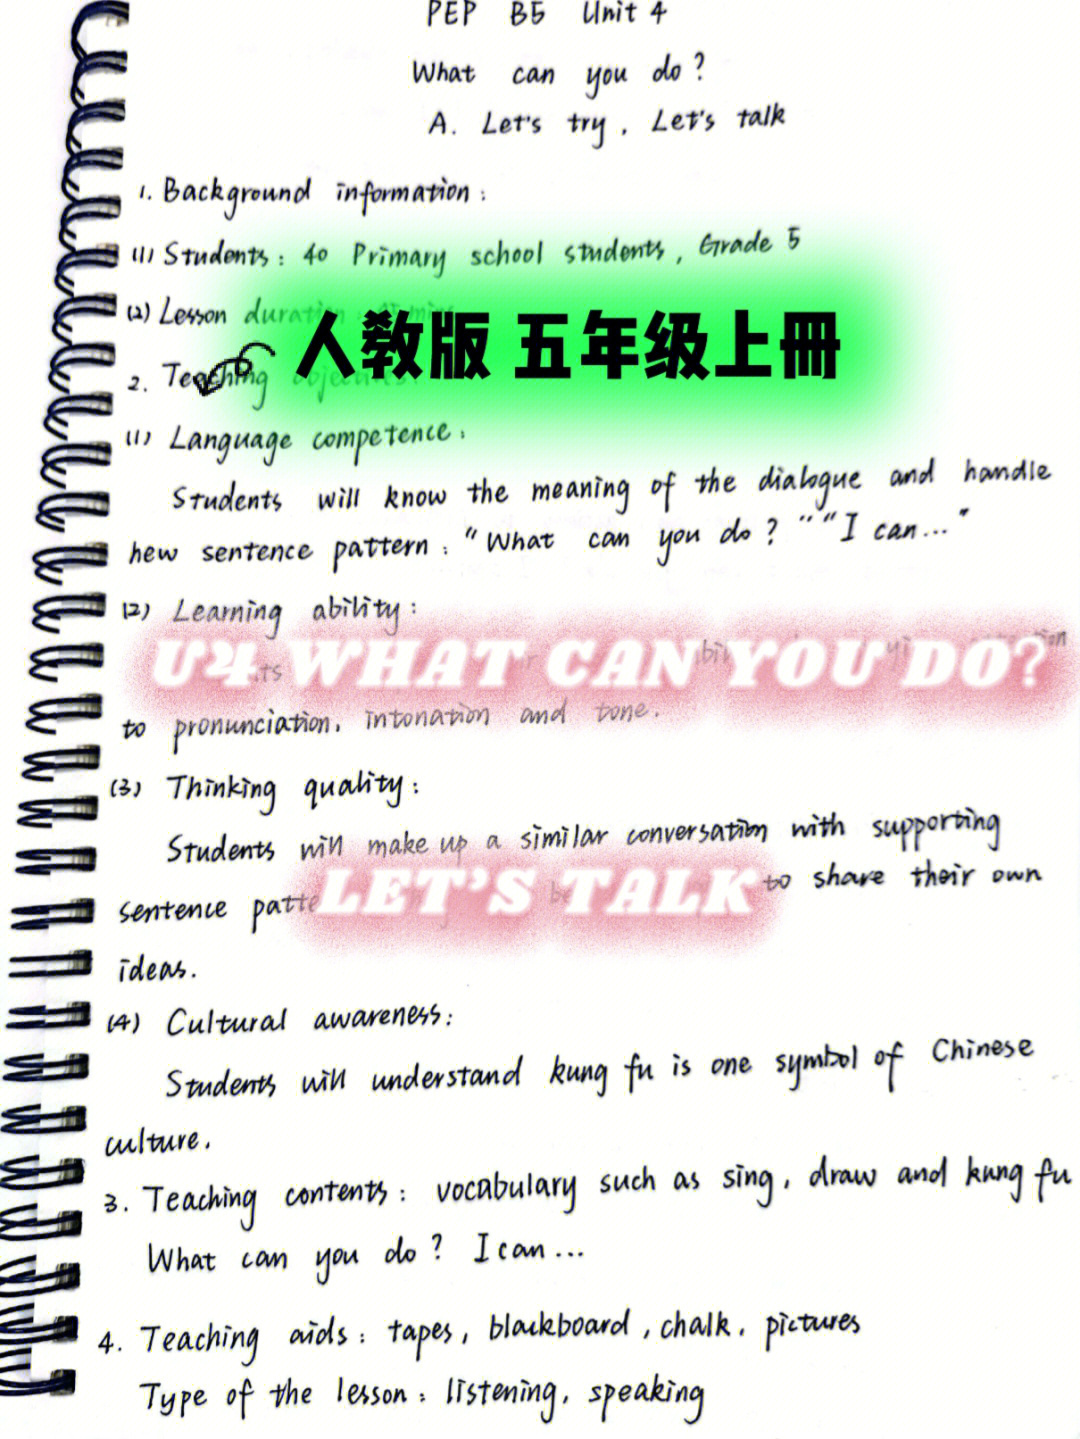 PEP B5 Unit 4
What can you do?
A. Let's try, Let's talk
1. Background information:
(1) Students: 40 Primary school students, Grade 5
(2) Lesson duration:
人教版 五年级上冊
2. Teaching objectives:
(1) Language competence:
Students will know the meaning of the dialogue and handle
new sentence pattern: "What can you do?" "I can..."
(2) Learning ability:
U4 WHAT CAN YOU DO?
to pronunciation, intonation and tone.
(3) Thinking quality:
Students will make up a similar conversation with supporting
sentence to share their own
LET'S TALK
ideas.
(4) Cultural awareness:
Students will understand kung fu is one symbol of Chinese
culture.
3. Teaching contents: vocabulary such as sing, draw and kung fu
What can you do? I can...
4. Teaching aids: tapes, blackboard, chalk, pictures
Type of the lesson: listening, speaking